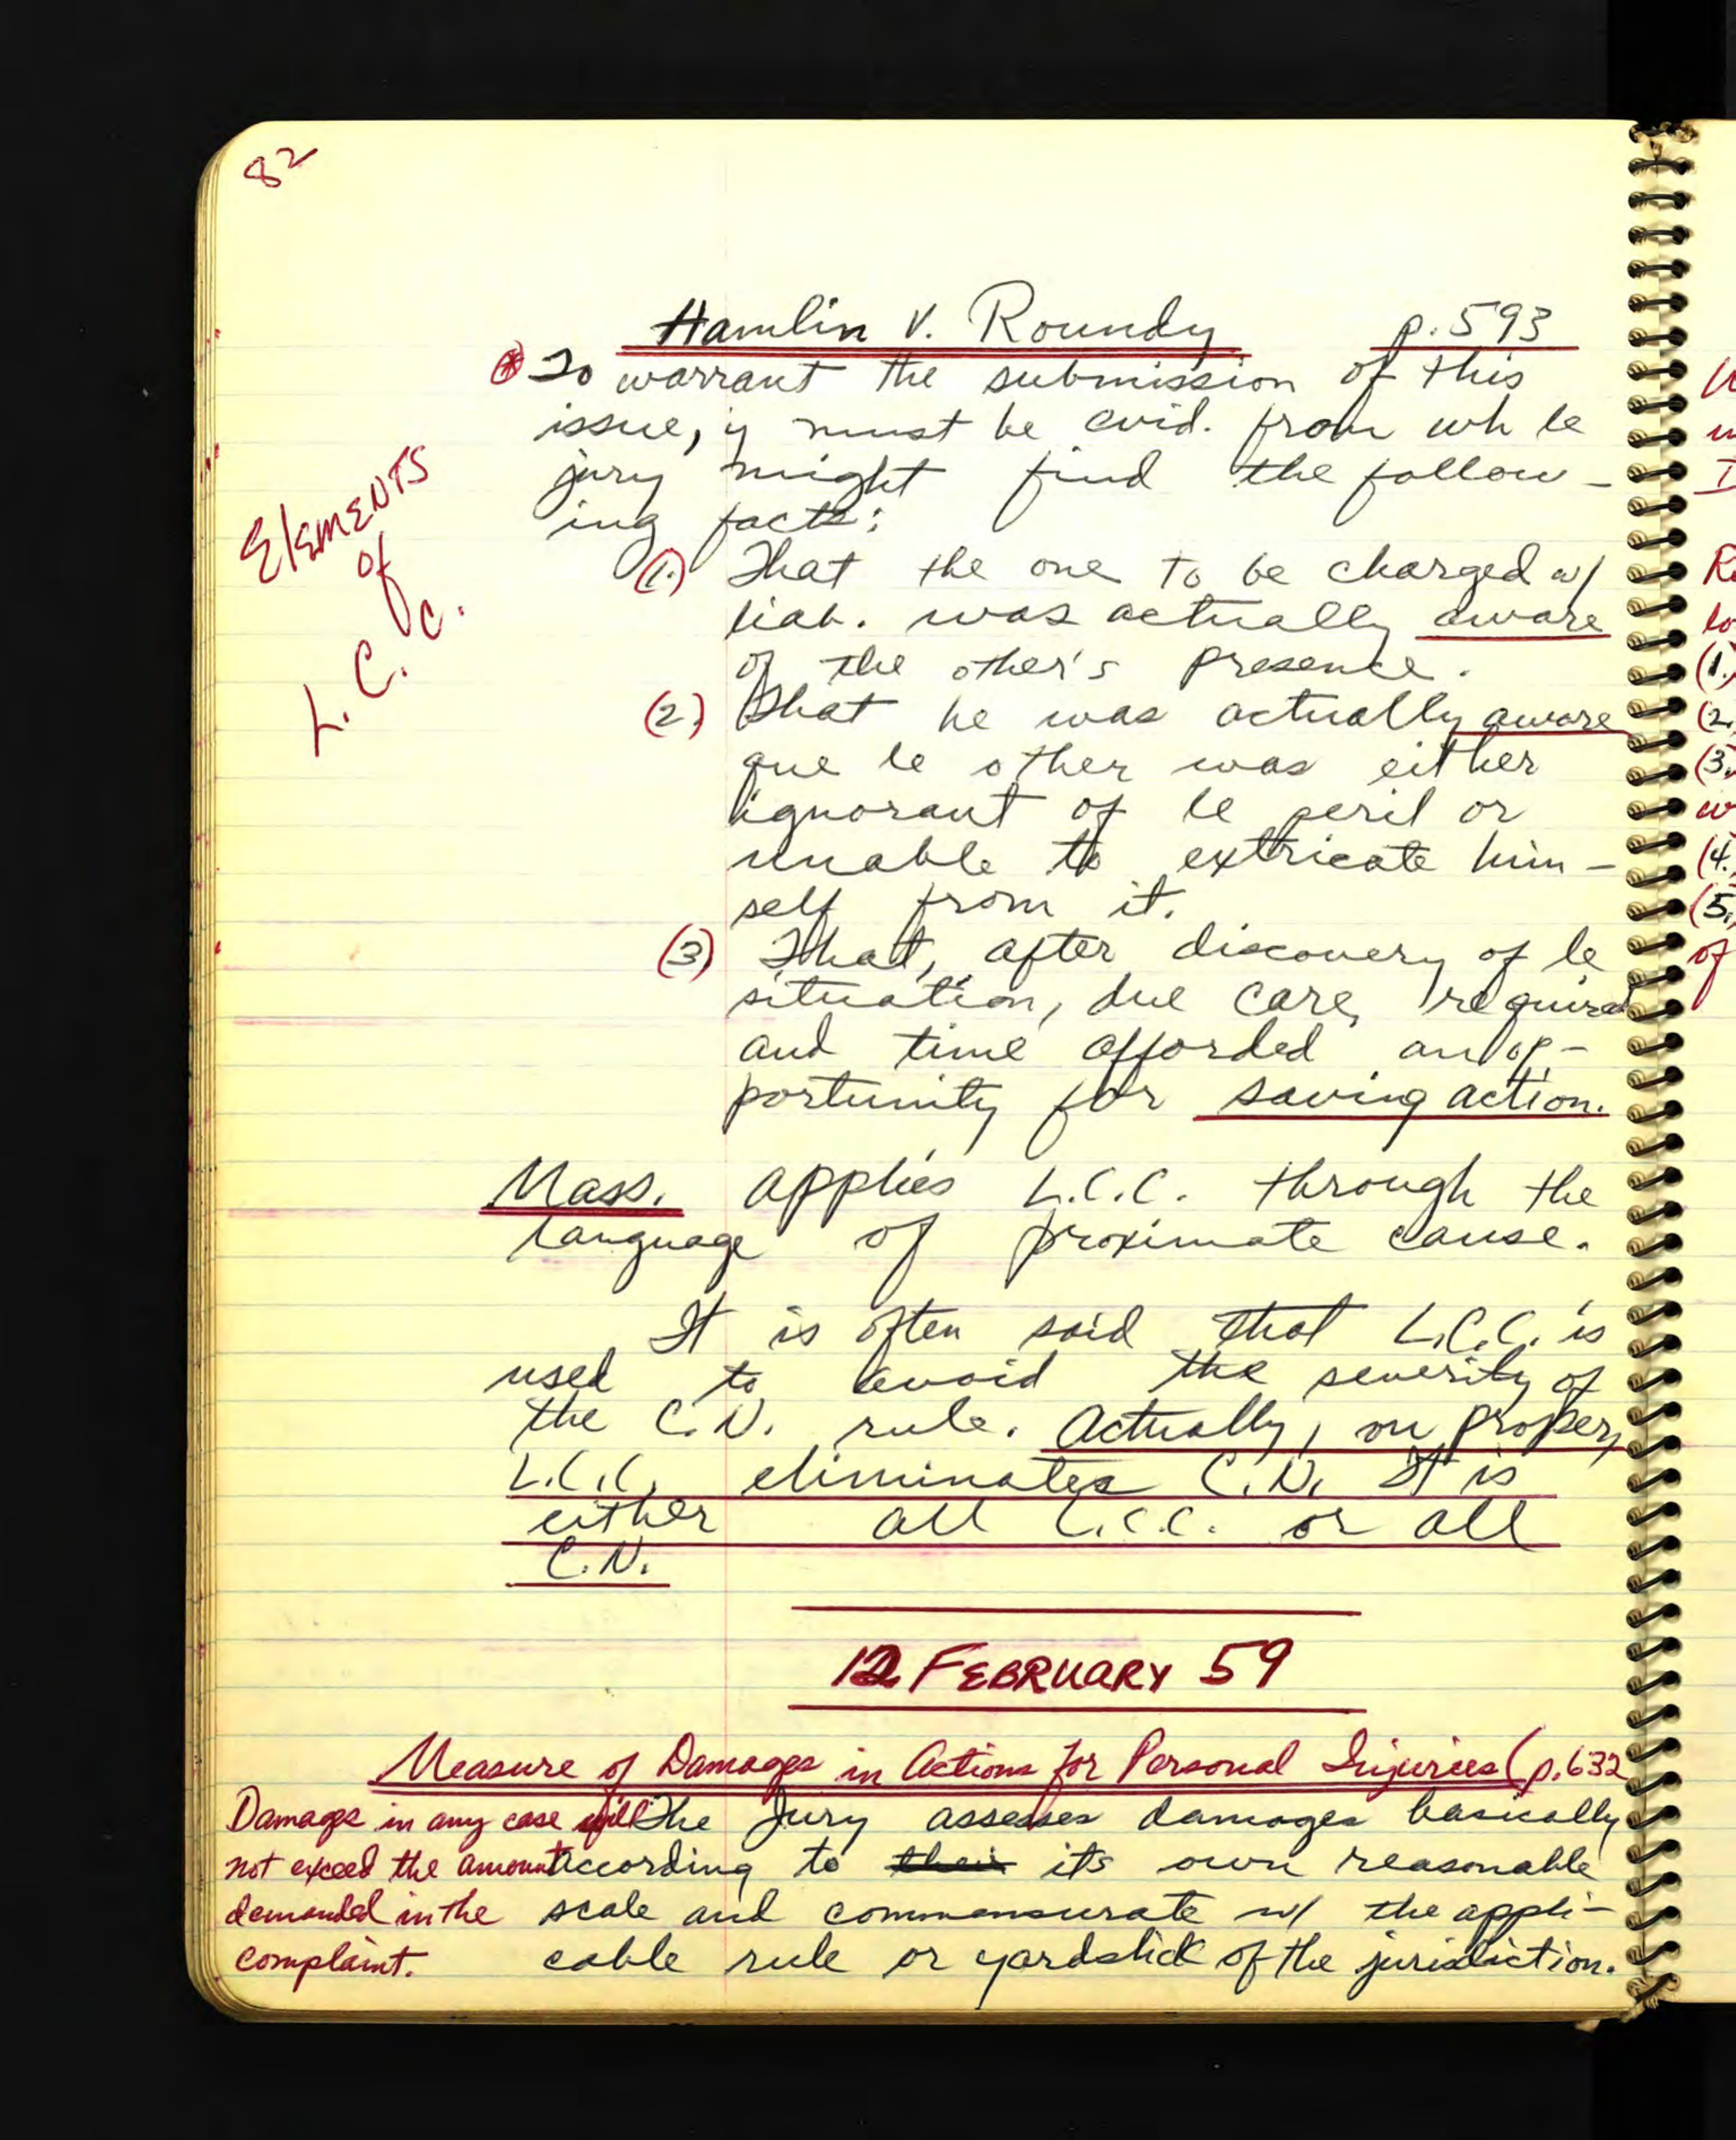 82
Hamlin v. Roundy p. 593
* To warrant the submission of this
issue, y must be evid. from wh le
jury might find the follow-
ing facts:
Elements
of
L. C. C.
(1.) That the one to be charged w/
liab. was actually aware
of the other's presence.
(2.) That he was actually aware
que le other was either
ignorant of le peril or
unable to extricate him-
self from it.
(3) That, after discovery of le
situation, due care required
and time afforded an op-
portunity for saving action.
Mass. applies L.C.C. through the
language of proximate cause.
It is often said that L.C.C. is
used to avoid the severity of
the C.N. rule. Actually, on proper,
L.C.C. eliminates C.N. It is
either all L.C.C. or all
C.N.
12 February 59
Measure of Damages in Actions for Personal Injuries (p. 632
Damage in any case will
not exceed the amount
demanded in the
complaint.
The jury assesses damages basically
according to their its own reasonable
scale and commensurate w/ the appli-
cable rule or yardstick of the jurisdiction.
(1.)
(2.
(3.
(4.
(5.
of